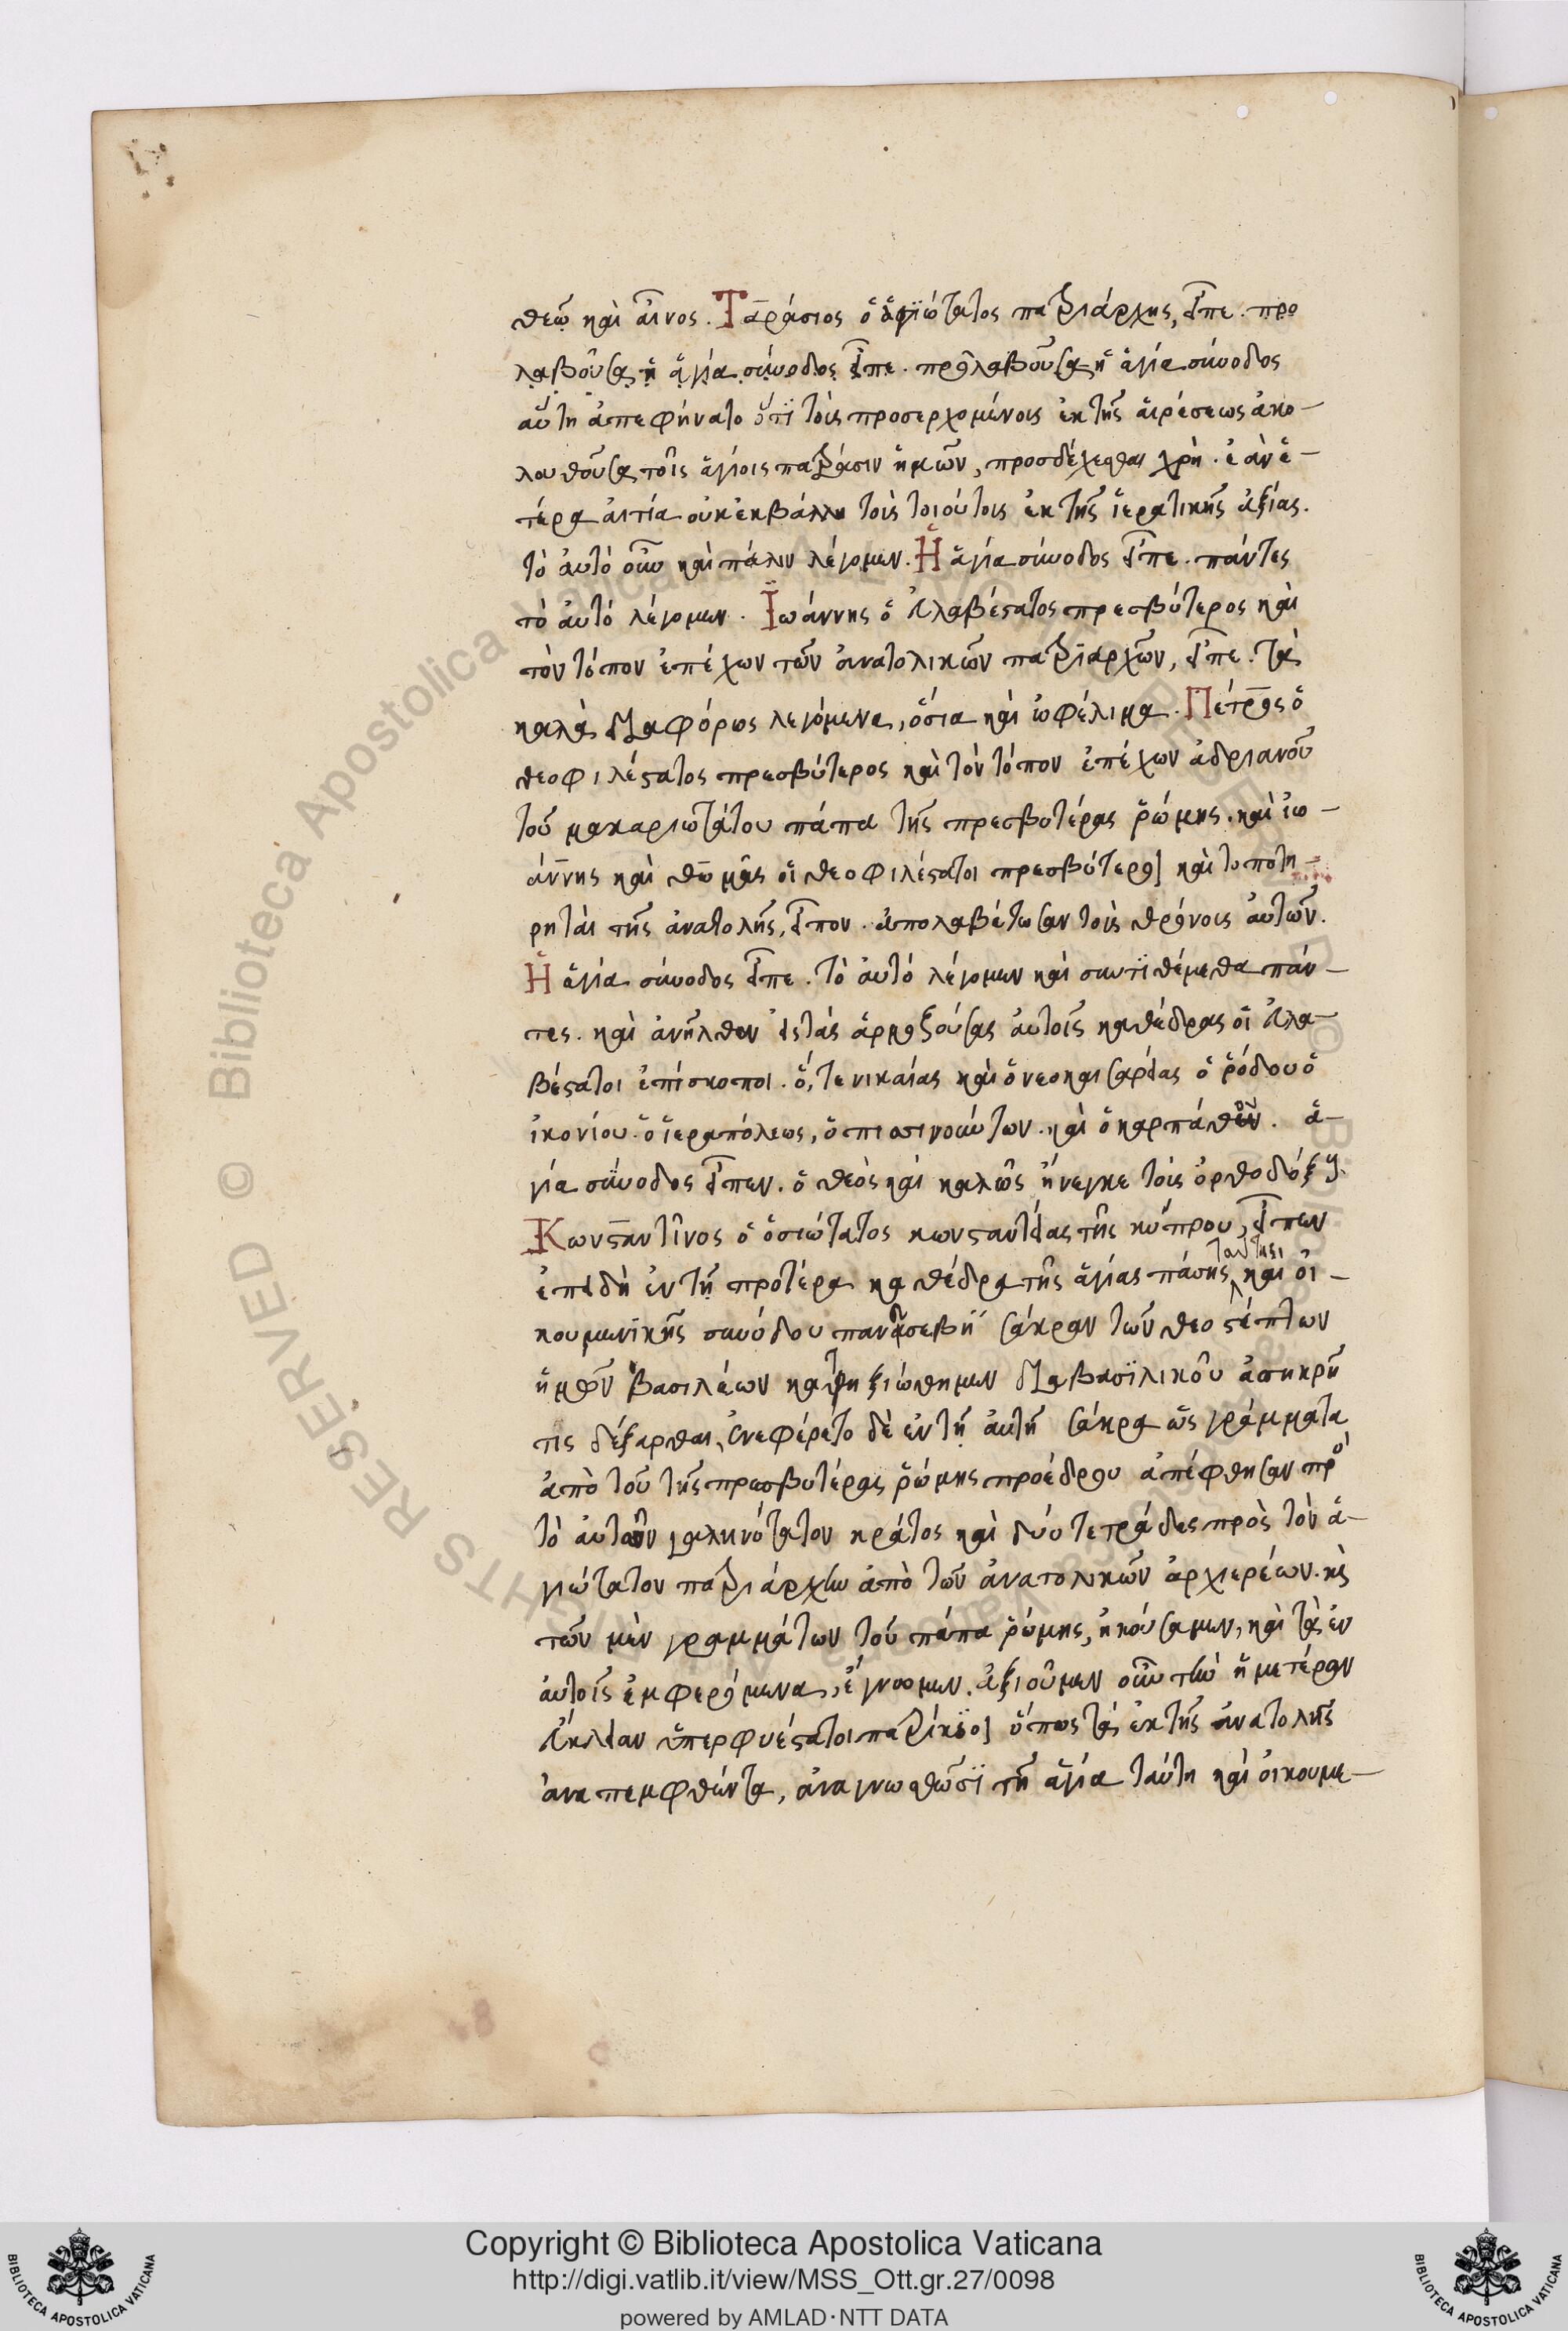 θεῷ καὶ αἶνος. Ταράσιος ὁ ἁγιώτατος πατριάρχης, εἶπε. προ
λαβοῦσα ἡ ἁγία σύνοδος εἶπε. προλαβοῦσα ἡ ἁγία σύνοδος
αὕτη ἀπεφήνατο ὅτι τοὺς προσερχομένους ἐκ τῆς αἱρέσεως ἀκο-
λουθοῦσα τοῖς ἁγίοις πατράσιν ἡμῶν, προσδέχεσθαι χρή. ἐὰν ἑ-
τέρα αἰτία οὐκ ἐκβάλλη τοὺς τοιούτους ἐκ τῆς ἱερατικῆς ἀξίας.
τὸ αὐτὸ οὖν καὶ πάλιν λέγομεν. Ἡ ἁγία σύνοδος εἶπε. πάντες
τὸ αὐτὸ λέγομεν. Ἰωάννης ὁ εὐλαβέστατος πρεσβύτερος καὶ
τὸν τόπον ἐπέχων τῶν ἀνατολικῶν πατριαρχῶν, εἶπε. τὰ
καλὰ διαφόρως λεγόμενα, ὅσια καὶ ὠφέλιμα. Πέτρος ὁ
θεοφιλέστατος πρεσβύτερος καὶ τὸν τόπον ἐπέχων ἀδριανοῦ
τοῦ μακαριωτάτου πάπα τῆς πρεσβυτέρας ῥώμης. καὶ ἰω-
άννης καὶ θωμᾶς οἱ θεοφιλέστατοι πρεσβύτεροι καὶ τοποτη-
ρηταὶ τῆς ἀνατολῆς, εἶπον. ἀπολαβέτωσαν τοὺς θρόνους αὐτῶν.
Ἡ ἁγία σύνοδος εἶπε. τὸ αὐτό λέγομεν καὶ συντιθέμεθα πάν-
τες. καὶ ἀνῆλθον εἰς τὰς ἁρμοζούσας αὐτοῖς καθέδρας οἱ εὐλα-
βέστατοι ἐπίσκοποι. ὅ, τε νικαίας καὶ ὁ νεοκαισαρείας ὁ ῥόδου ὁ
ἰκονίου. ὁ ἱεραπόλεως, ὁ πισινούντων. καὶ ὁ καρπάθου. ἁ-
γία σύνοδος εἶπεν. ὁ θεὸς καὶ καλῶς ἤνεγκε τοὺς ὀρθοδόξους.
Κωνσταντῖνος ὁ ὁσιώτατος κωνσταντείας τῆς κύπρου, εἶπεν
ἐπειδὴ ἐν τῇ προτέρα καθέδρα τῆς ἁγίας πάσης ταύτης καὶ οἰ-
κουμενικῆς συνόδου πανευσεβῆ σάκραν τῶν θεοστέπτων
ἡμῶν βασιλέων κατηξιώθημεν διὰ βασιλικοῦ ἀσηκρῆ
τις δέξασθαι, ἐνεφέρετο δὲ ἐν τῇ αὐτῇ σάκρα ὡς γράμματα
ἀπὸ τοῦ τῆς πρεσβυτέρας ῥώμης προέδρου ἀπέφθησαν πρὸ
τὸ αὐτῶν γαληνότατον κράτος καὶ δύο τετράδες πρὸς τὸν ἁ-
γιώτατον πατριάρχην ἀπὸ τῶν ἀνατολικῶν ἀρχιερέων. καὶ
τῶν μὲν γραμμάτων τοῦ πάπα ῥώμης, ἠκούσαμεν, καὶ τὰ ἐν
αὐτοῖς ἐμφερόμενα, ἔγνωμεν. ἀξιοῦμεν οὖν τὴν ἡμετέραν
εὔκλειαν ὑπερφυέστατοι πατρίκιοι ὅπως τὰ ἐκ τῆς ἀνατολῆς
ἀναπεμφθέντα, ἀναγνωσθῶσι τῇ ἁγία ταύτη καὶ οἰκουμε-
Copyright © Biblioteca Apostolica Vaticana
http://digi.vatlib.it/view/MSS_Ott.gr.27/0098
powered by AMLAD·NTT DATA